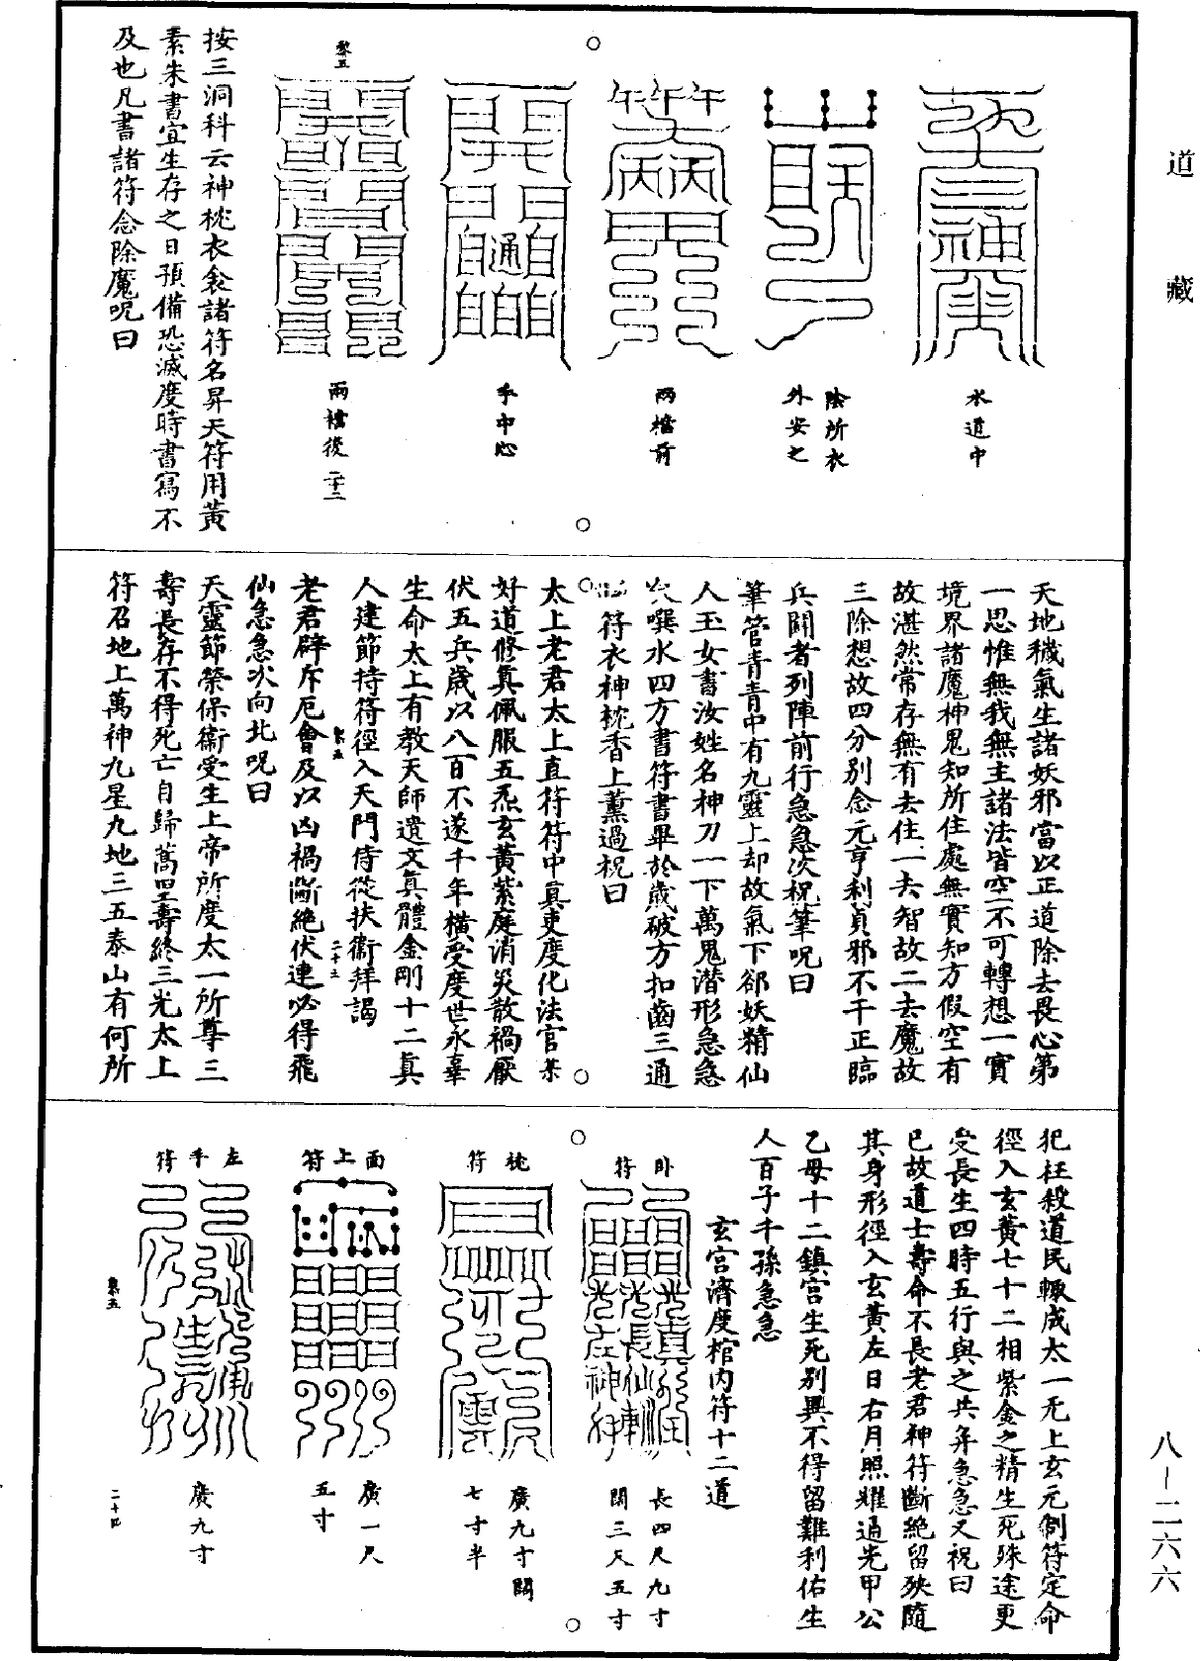 道藏
水道中
除所衣
外安之
兩檔前
手中心
兩襠後二十二
按三洞科云神枕衣衾諸符名昇天符用黃
素朱書宜生存之日預備恐滅度時書寫不
及也凡書諸符念除魔呪曰
天地穢氣生諸妖邪當以正道除去畏心第
一思惟無我無主諸法皆空不可轉想一實
境界諸魔神鬼知所住處無實知方假空有
故湛然常存無有去住一去智故二去魔故
三除想故四分別念元亨利貞邪不干正臨
兵鬭者列陣前行急急次祝筆呪曰
筆管青青中有九靈上却故氣下郤妖精仙
人玉女書汝姓名神刀一下萬鬼潛形急急
次噀水四方書符書畢於歲破方扣齒三通
符衣神枕香上薰過祝曰
太上老君太上直符符中真吏度化法官某
好道修真佩服五炁玄黃紫庭消災散禍厭
伏五兵歲以八百不遂千年橫受度世永辜
生命太上有教天師遺文真體金剛十二真
人建節持符徑入天門侍從扶衞拜謁
老君辟斥厄會及以凶禍斷絕伏連必得飛
仙急急次向北呪曰
天靈節榮保衞受生上帝所度太一所尊三
壽長存不得死亡自歸蒿里壽終三光太上
符召地上萬神九星九地三五泰山有何所
犯枉殺道民輙成太一无上玄元制符定命
徑入玄黃七十二相紫金之精生死殊途更
受長生四時五行與之共并急急又祝曰
已故道士壽命不長老君神符斷絕留殃隨
其身形徑入玄黃左日右月照耀通光甲公
乙母十二鎮宮生死別異不得留難利佑生
人百子千孫急急
玄宮濟度棺內符十二道
卧符
長四尺九寸
闊三尺五寸
枕符
廣九寸闊
七寸半
面上符
廣一尺
五寸
左手符
廣九寸
二十四
八—二六六